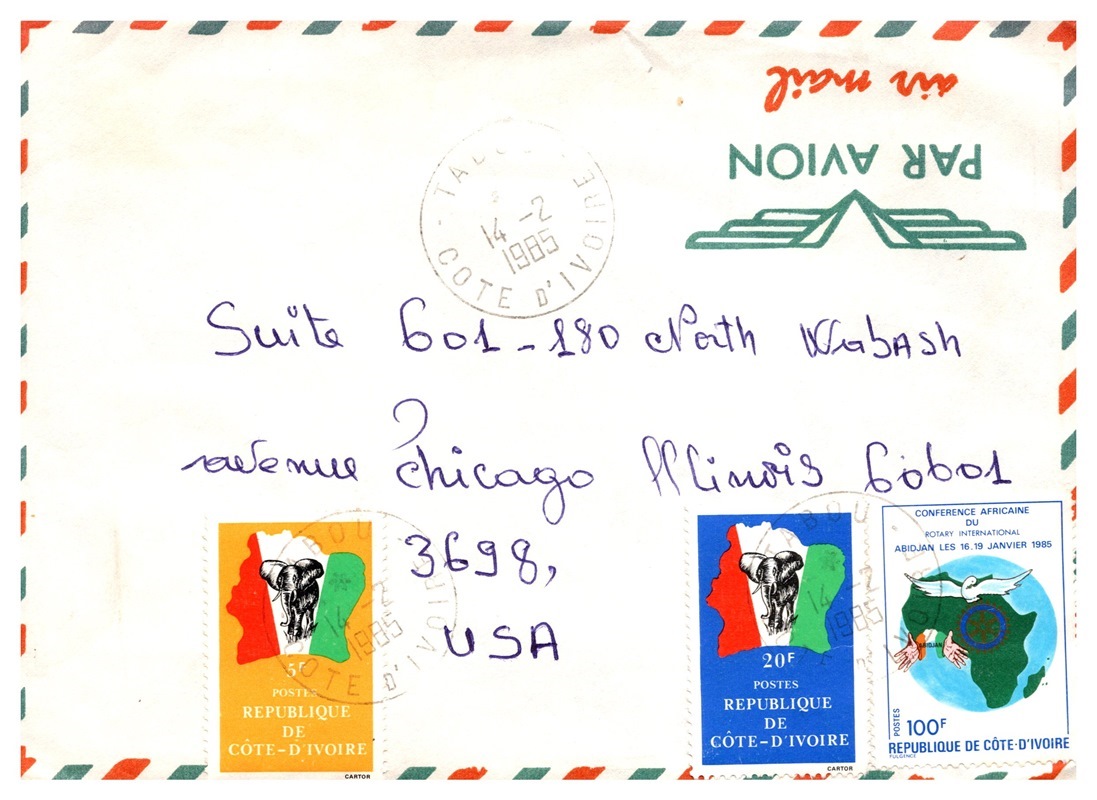 air mail
PAR AVION
TABOU
14 -2
1985
COTE D'IVOIRE
Suite 601-180 North Wabash
avenue Chicago Illinois 60601
3698,
USA
TABOU
14 -2
1985
COTE D'IVOIRE
5F
POSTES
REPUBLIQUE
DE
CÔTE-D'IVOIRE
CARTOR
TABOU
14 -2
1985
20F
POSTES
REPUBLIQUE
DE
CÔTE-D'IVOIRE
CARTOR
CONFERENCE AFRICAINE
DU
ROTARY INTERNATIONAL
ABIDJAN LES 16.19 JANVIER 1985
ABIDJAN
POSTES
100F
REPUBLIQUE DE CÔTE-D'IVOIRE
FULGENCE